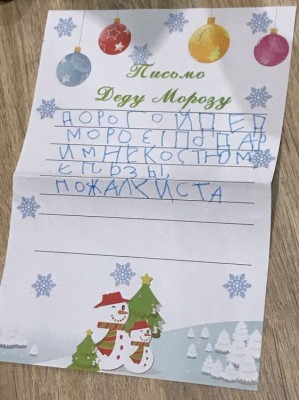 Письмо
Деду Морозу
ДОРОГОЙ ДЕД
МОРОЗ ПОДАР
И МНЕ КОСТЮМ
ЕЛЬЗЫ,
ПОЖАЛКИСТА